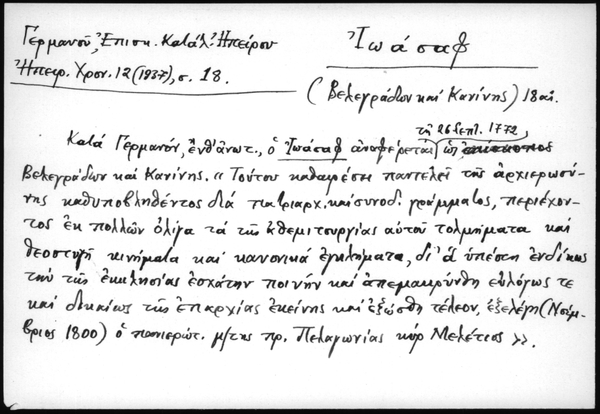 Γερμανοῦ, Ἐπισκ. Κατάλ. Ἠπείρου
Ἠπειρ. Χρον. 12 (1937), σ. 18.
Ἰωάσαφ
(Βελεγράδων καὶ Κανίνης) 18 αἰ.
τῇ 26 Σεπτ. 1772
Κατὰ Γερμανόν, ἔνθ' ἀνωτ., ὁ Ἰωάσαφ ἀναφέρεται ὡς ἐπίσκοπος
Βελεγράδων καὶ Κανίνης. «Τούτου καθαιρέσει παντελεῖ τῆς ἀρχιερωσύ-
νης καθυποβληθέντος διὰ πατριαρχ. καὶ συνοδ. γράμματος, περιέχον-
τος ἐκ πολλῶν ὀλίγα τὰ τῆς ἀθεμιτουργίας αὐτοῦ τολμήματα καὶ
θεοστυγῆ κινήματα καὶ κανονικὰ ἐγκλήματα, δι' ἃ ὑπέστη ἐνδίκως
τὴν τῆς ἐκκλησίας ἐσχάτην ποινὴν καὶ ἀπεμακρύνθη εὐλόγως τε
καὶ δικαίως τῆς ἐπαρχίας ἐκείνης καὶ ἐξώσθη τέλεον, ἐξελέγη (Νοέμ-
βριος 1800) ὁ πανιερώτ. μ/της πρ. Πελαγωνίας κὺρ Μελέτιος».